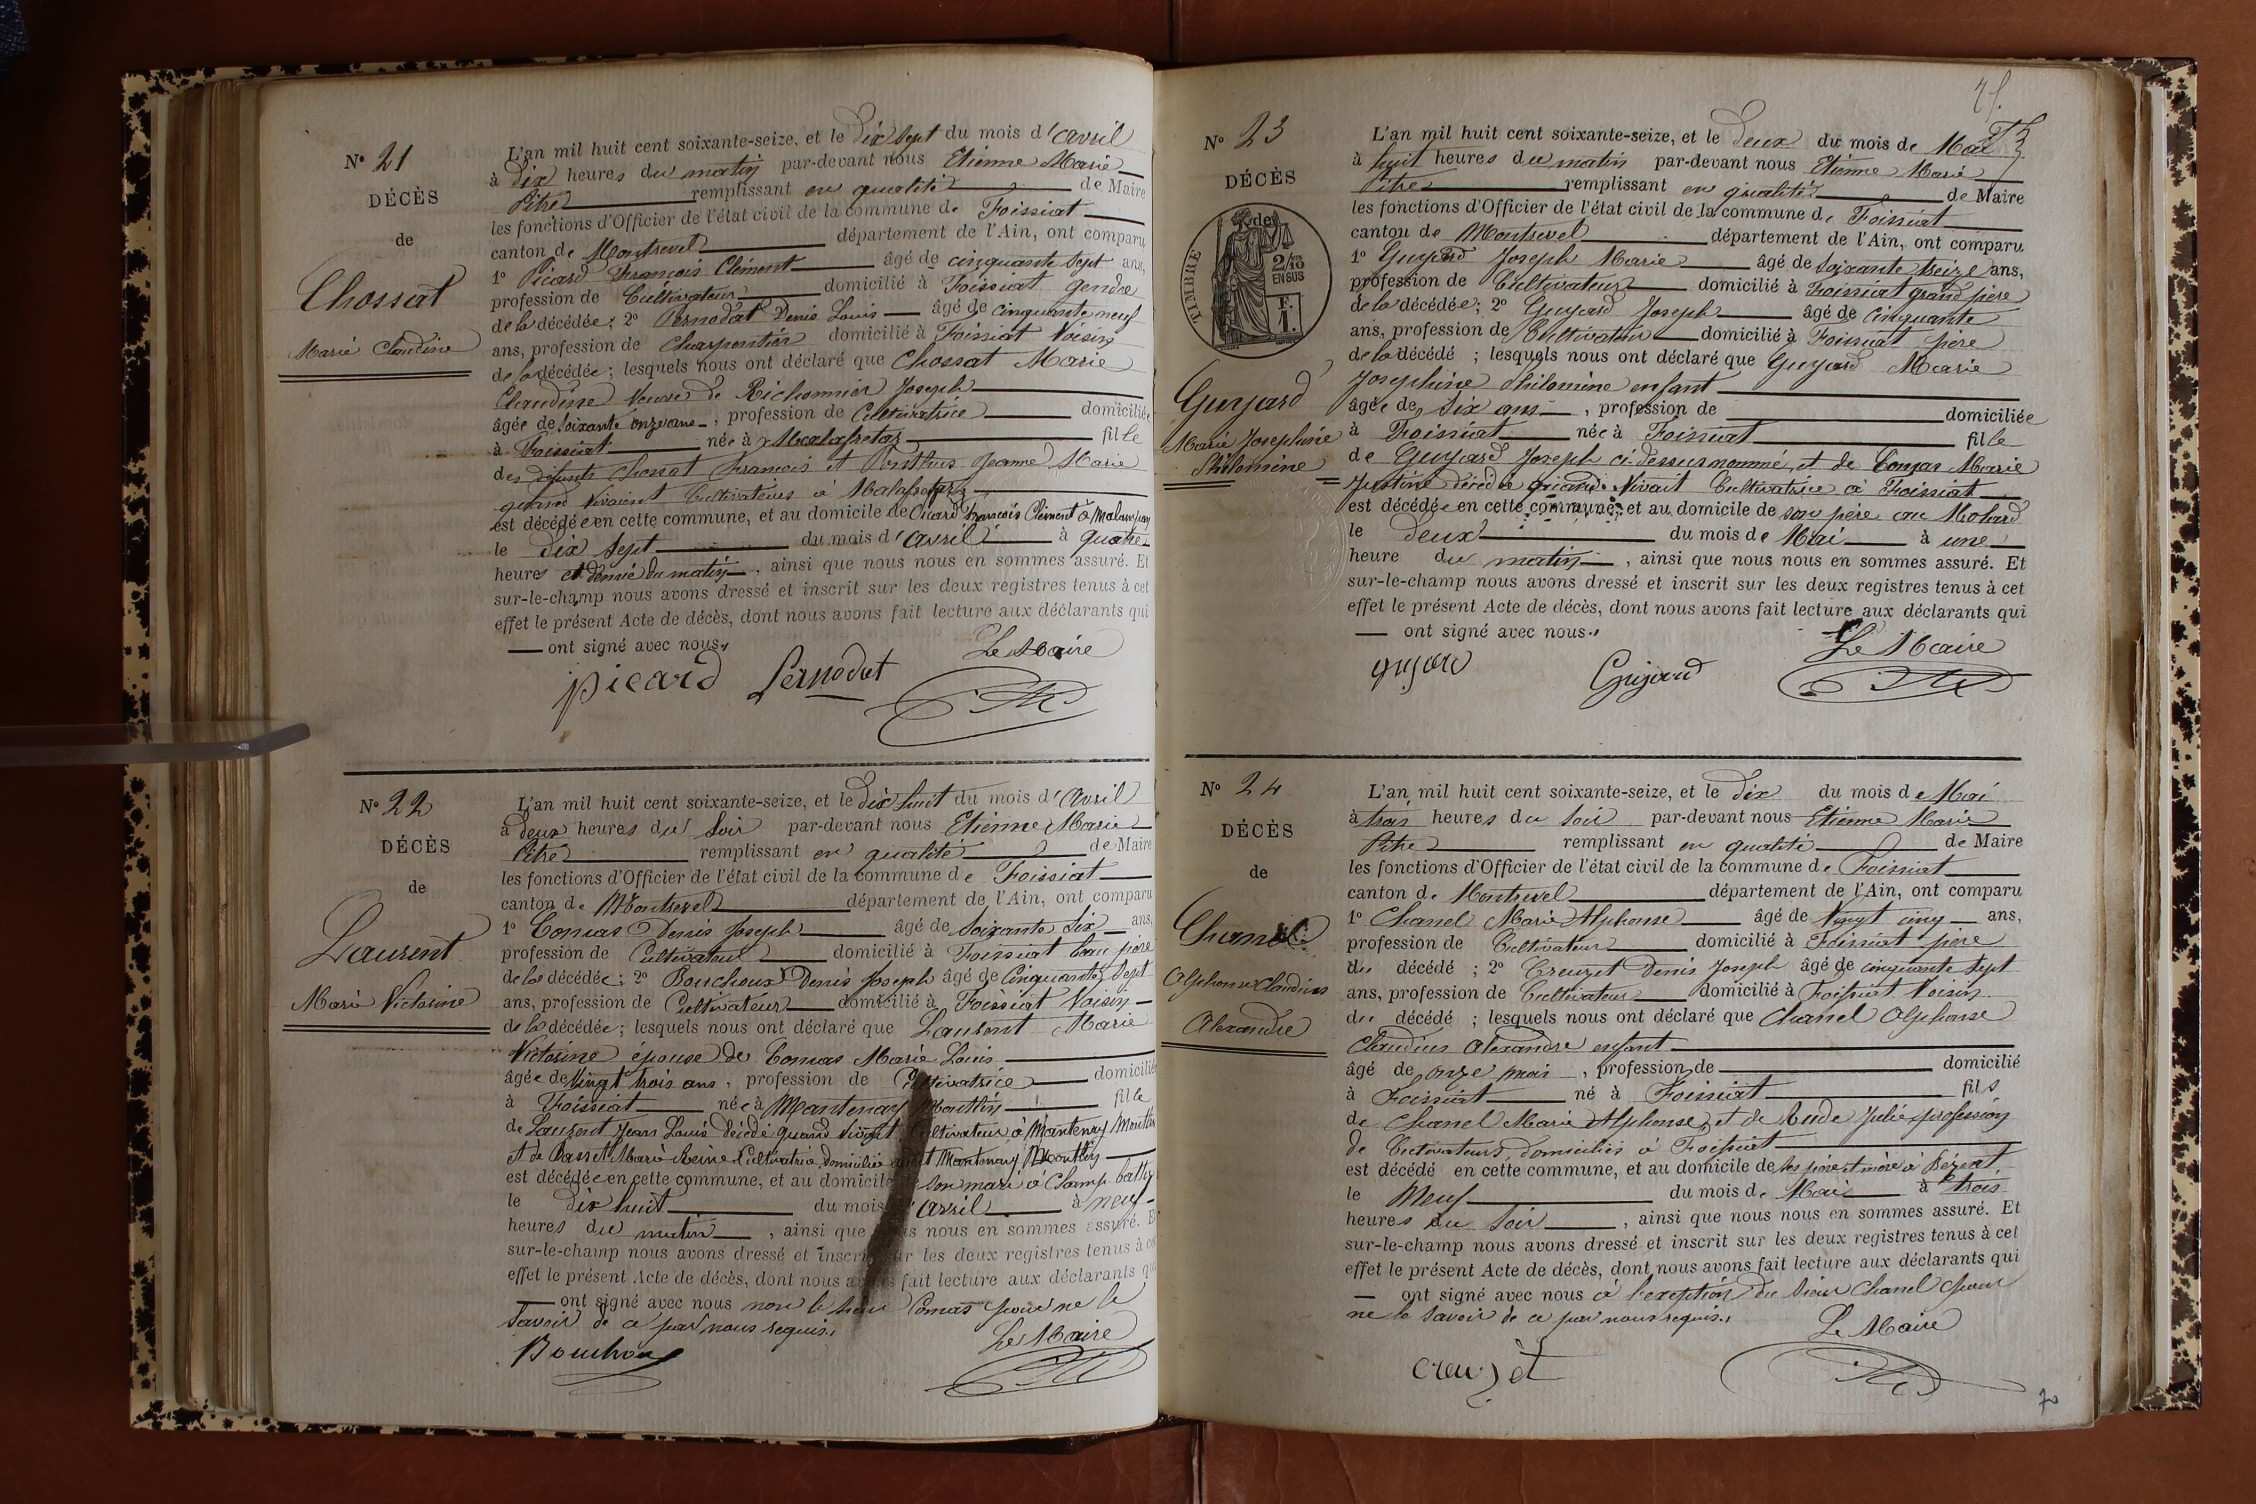 N° 21
DÉCÈS
de
Chossat
Marie Claudine
L'an mil huit cent soixante-seize, et le Dix sept du mois d'avril
à Dix heures du matin par-devant nous Etienne Marie
Pitre remplissant en qualité de Maire
les fonctions d'Officier de l'état civil de la commune de Foissiat
canton de Montrevel département de l'Ain, ont comparu
1° Picard François Clément âgé de cinquante sept ans,
profession de Cultivateur domicilié à Foissiat gendre
de la décédée; 2° Pernodat Denis Louis âgé de cinquante neuf
ans, profession de Charpentier domicilié à Foissiat Voisin
de la décédée; lesquels nous ont déclaré que Chossat Marie
Claudine Veuve de Richonnier Joseph
âgée de soixante onze ans, profession de Cultivatrice domiciliée
à Foissiat née à Malafretaz fille
des défunts Chossat François et Ponthus Jeanne Marie
quand vivaient Cultivateurs à Malafretaz
est décédée en cette commune, et au domicile de Picard François Clément à
le Dix sept du mois d'avril à quatre
heures et demie du matin, ainsi que nous nous en sommes assuré. Et
sur-le-champ nous avons dressé et inscrit sur les deux registres tenus à cet
effet le présent Acte de décès, dont nous avons fait lecture aux déclarants qui
ont signé avec nous.
Le Maire
Picard Pernodat
N° 22
DÉCÈS
de
Laurent
Marie Victorine
L'an mil huit cent soixante-seize, et le Dix huit du mois d'avril
à deux heures du soir par-devant nous Etienne Marie
Pitre remplissant en qualité de Maire
les fonctions d'Officier de l'état civil de la commune de Foissiat
canton de Montrevel département de l'Ain, ont comparu
1° Comas Denis Joseph âgé de soixante six ans,
profession de Cultivateur domicilié à Foissiat beau père
de la décédée; 2° Bouchoux Denis Joseph âgé de cinquante sept
ans, profession de Cultivateur domicilié à Foissiat Voisin
de la décédée; lesquels nous ont déclaré que Laurent Marie
Victorine épouse de Comas Marie Louis
âgée de vingt trois ans, profession de Cultivatrice domiciliée
à Foissiat née à Mantenay Montlin fille
de Laurent Jean Louis décédé quand vivait Cultivateur à Mantenay Montlin
et de Marie Reine Cultivatrice domiciliée Mantenay Montlin
est décédée en cette commune, et au domicile de son mari à Champ
le dix huit du mois d'avril à neuf
heures du matin, ainsi que nous nous en sommes assuré. Et
sur-le-champ nous avons dressé et inscrit sur les deux registres tenus à cet
effet le présent Acte de décès, dont nous avons fait lecture aux déclarants qui
ont signé avec nous non le sieur Comas pour ne le
savoir de ce par nous requis.
Le Maire
Bouchoux
N° 23
DÉCÈS
de
TIMBRE
2/10
EN SUS
F.
1.
Guyard
Marie Josephine
Philomine
L'an mil huit cent soixante-seize, et le Deux du mois de Mai
à huit heures du matin par-devant nous Etienne Marie
Pitre remplissant en qualité de Maire
les fonctions d'Officier de l'état civil de la commune de Foissiat
canton de Montrevel département de l'Ain, ont comparu
1° Guyard Joseph Marie âgé de soixante treize ans,
profession de Cultivateur domicilié à Foissiat grand père
de la décédée; 2° Guyard Joseph âgé de cinquante
ans, profession de Cultivateur domicilié à Foissiat père
de la décédé ; lesquels nous ont déclaré que Guyard Marie
Josephine Philomine enfant
âgée de six ans, profession de domiciliée
à Foissiat née à Foissiat fille
de Guyard Joseph ci-dessus nommé, et de Comas Marie
Justine décédée quand vivait Cultivatrice à Foissiat
est décédée en cette commune, et au domicile de son père au Molard
le deux du mois de Mai à une
heure du matin, ainsi que nous nous en sommes assuré. Et
sur-le-champ nous avons dressé et inscrit sur les deux registres tenus à cet
effet le présent Acte de décès, dont nous avons fait lecture aux déclarants qui
ont signé avec nous.
Le Maire
guyard Guyard
N° 24
DÉCÈS
de
Chanel
Alphonse Claudius
Alexandre
L'an mil huit cent soixante-seize, et le dix du mois de Mai
à trois heures du soir par-devant nous Etienne Marie
Pitre remplissant en qualité de Maire
les fonctions d'Officier de l'état civil de la commune de Foissiat
canton de Montrevel département de l'Ain, ont comparu
1° Chanel Marie Alphonse âgé de Vingt cinq ans,
profession de Cultivateur domicilié à Foissiat père
du décédé ; 2° Creuzet Denis Joseph âgé de cinquante sept
ans, profession de Cultivateur domicilié à Foissiat Voisin
du décédé ; lesquels nous ont déclaré que Chanel Alphonse
Claudius Alexandre enfant
âgé de onze mois, profession de domicilié
à Foissiat né à Foissiat fils
de Chanel Marie Alphonse, et de Julie profession
de Cultivateurs domiciliés à Foissiat
est décédé en cette commune, et au domicile de ses père et mère à
le Neuf du mois de Mai à trois
heures du soir, ainsi que nous nous en sommes assuré. Et
sur-le-champ nous avons dressé et inscrit sur les deux registres tenus à cet
effet le présent Acte de décès, dont nous avons fait lecture aux déclarants qui
ont signé avec nous à l'exception du sieur Chanel pour
ne le savoir de ce par nous requis.
Le Maire
creuzet
70